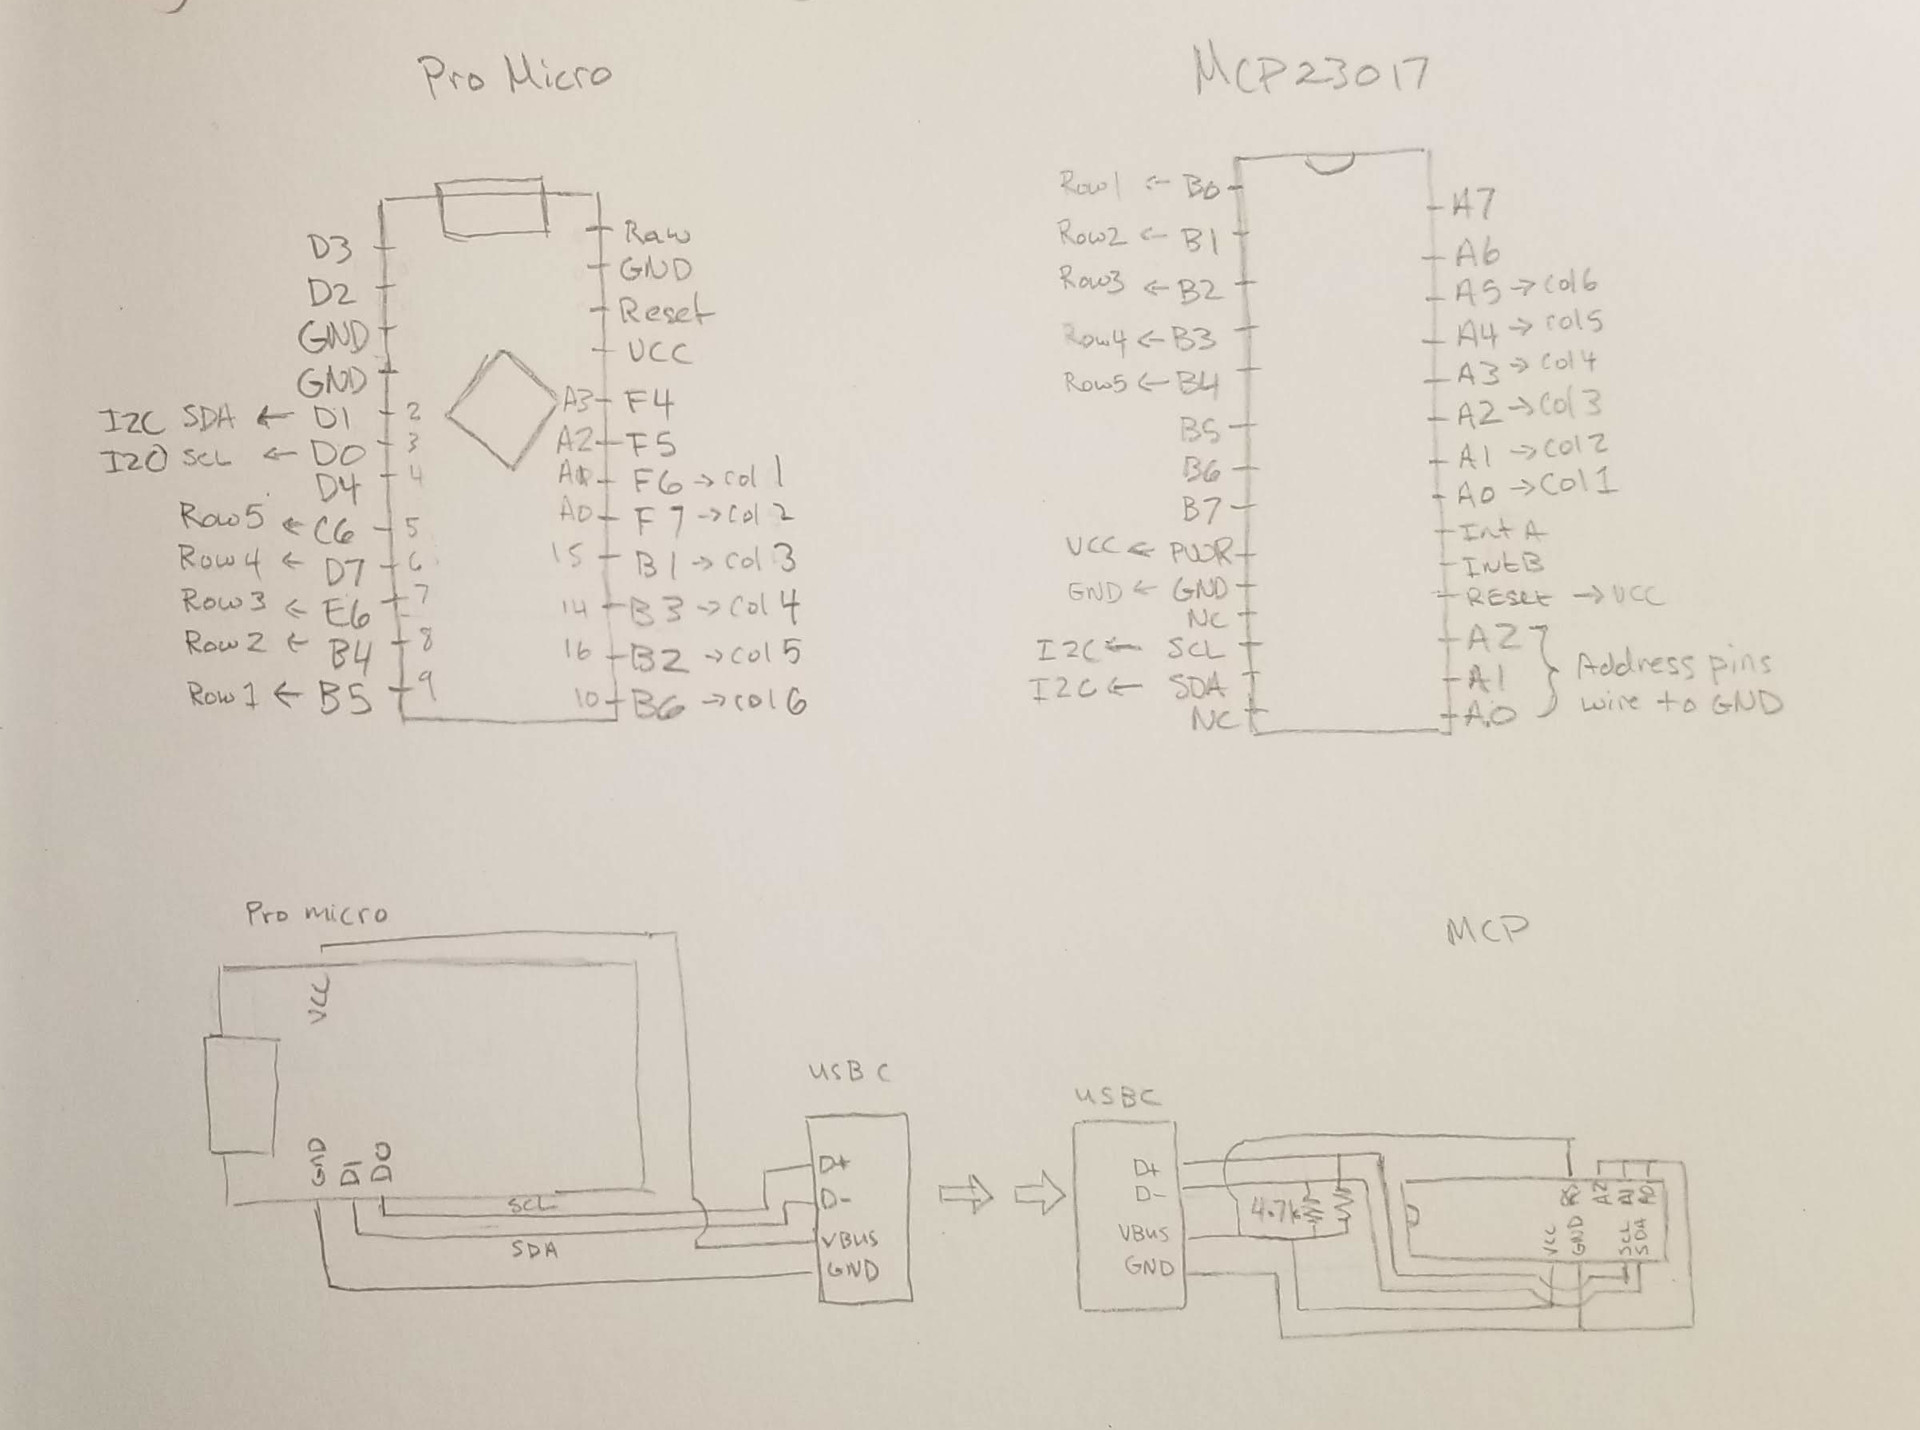 Pro Micro
D3
D2
GND
GND
I2C SDA ← D1 2
I2C SCL ← D0 3
D4 4
Row5 ← C6 5
Row4 ← D7 6
Row3 ← E6 7
Row2 ← B4 8
Row1 ← B5 9
Raw
GND
Reset
VCC
A3 F4
A2 F5
F6 → col 1
A0 F7 → col 2
15 B1 → col 3
14 B3 → col 4
16 B2 → col 5
10 B6 → col 6
MCP23017
Row1 ← B0
Row2 ← B1
Row3 ← B2
Row4 ← B3
Row5 ← B4
B5
B6
B7
VCC ← PWR
GND ← GND
NC
I2C ← SCL
I2C ← SDA
NC
A7
A6
A5 → col6
A4 → col5
A3 → col4
A2 → col3
A1 → col2
A0 → col1
Int A
Int B
REset → VCC
A2
A1
A0
Address pins
wire to GND
Pro micro
VCC
GND
D1
D0
SCL
SDA
USB C
D+
D-
VBUS
GND
MCP
USBC
D+
D-
VBUS
GND
4.7k
A2
A1
A0
VCC
GND
SCL
SDA